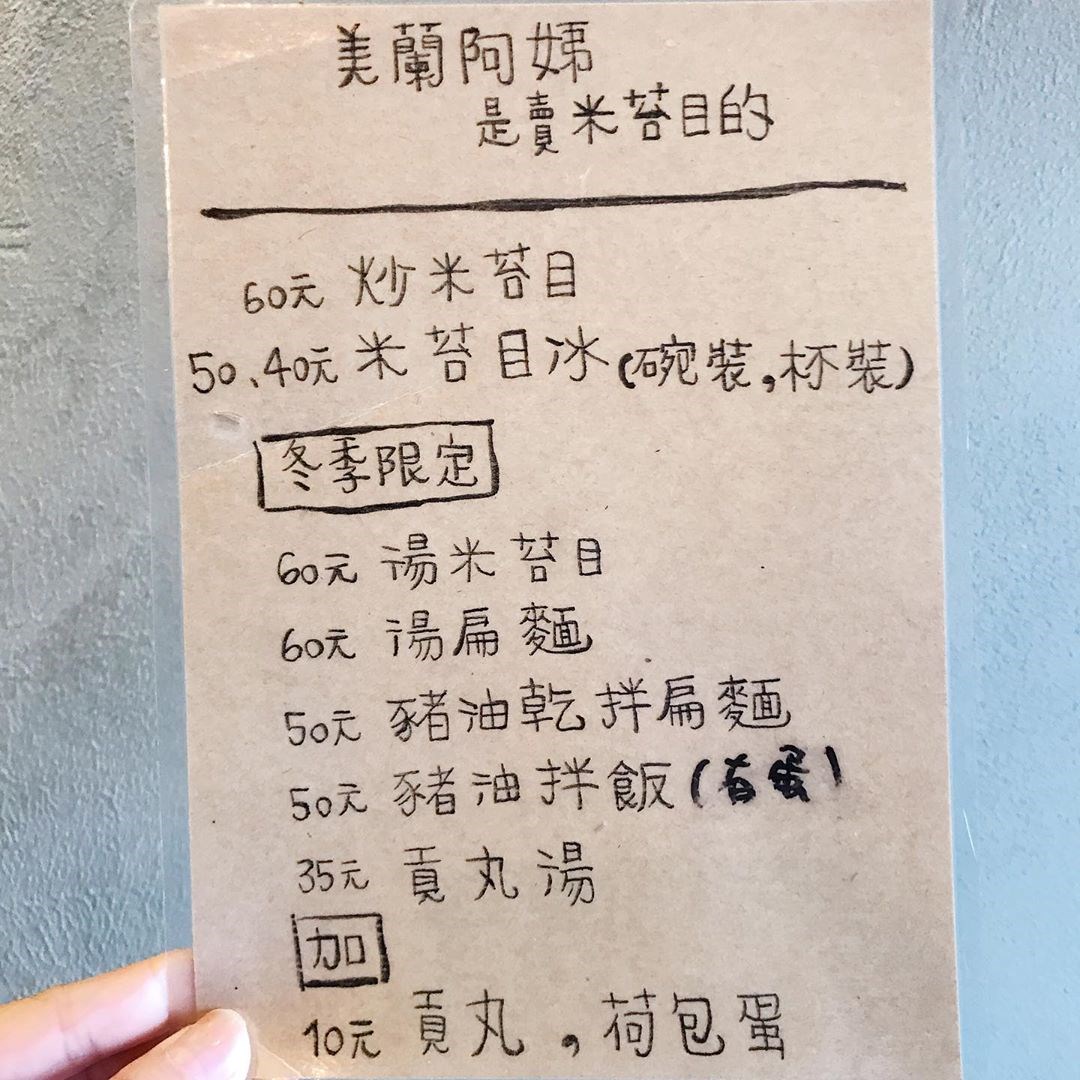 美蘭阿娣
是賣米苔目的
60元 炒米苔目
50、40元 米苔目冰(碗裝,杯裝)
冬季限定
60元 湯米苔目
60元 湯扁麵
50元 豬油乾拌扁麵
50元 豬油拌飯(有蛋)
35元 貢丸湯
加
10元 貢丸,荷包蛋